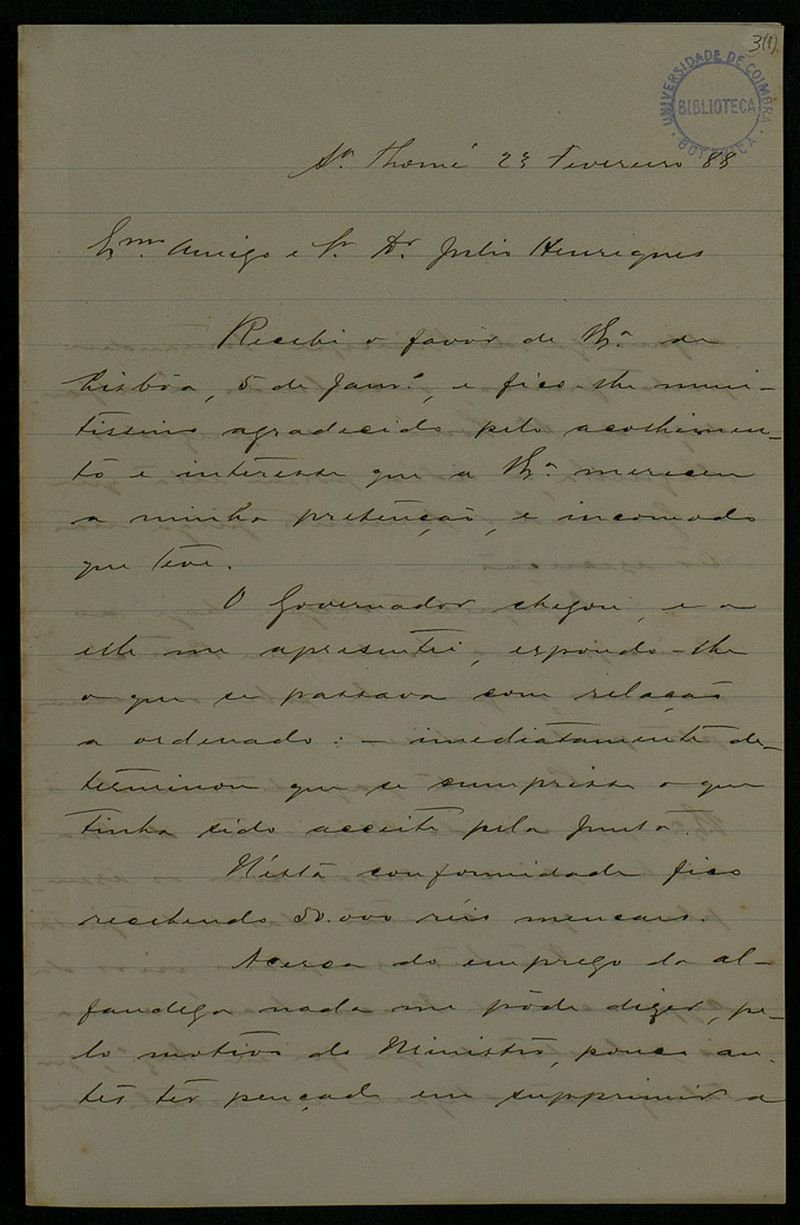 3(1)
UNIVERSIDADE DE COIMBRA
BIBLIOTECA
BOTANICA
Sn. Thomé 23 Fevereiro 88
Exmo. Amigo e Sr. Dr. Julio Henriques
Recebi o favôr de V.Exa. de
Lisbôa, 5 de Janro., e fico-lhe mui-
tissimo agradecido pelo acolhimen-
to e interesse que a V.Exa. mereceu
a minha pretenção, e incomodo
que teve.
O Governador chegou, e a
elle me apresentei, expondo-lhe
o que se passava com relação
a ordenado: - imediatamente de-
terminou que se cumprisse o que
tinha sido acceite pela Junta.
N'ésta conformidade fico
recebendo 50.000 réis mençaes.
Acerca do emprego da al-
fandega nada me pôde dizer, pe-
lo motivo do Ministro, pouco an-
tes ter pençado em supprimir a